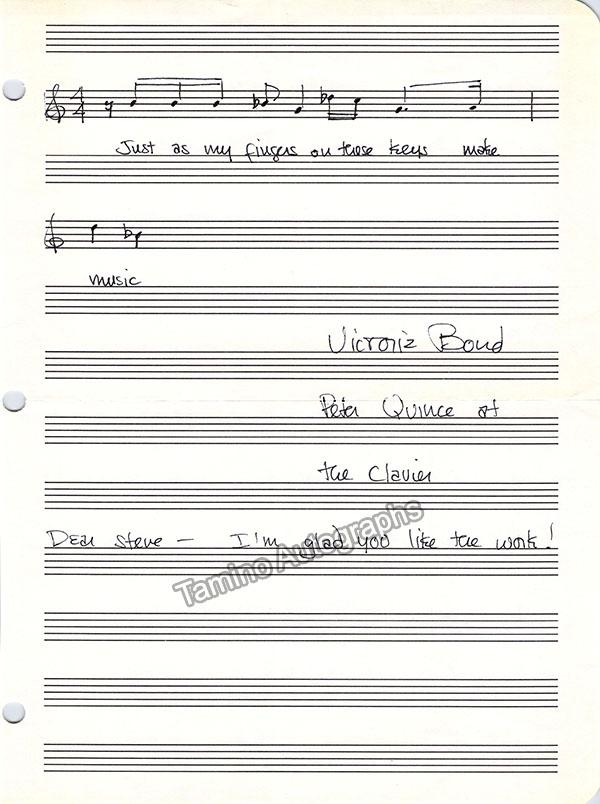 Just as my fingers on these keys make
music
Victoria Bond
Peter Quince at
the Clavier
Dear Steve — I'm glad you like the work!
Tamino Autographs